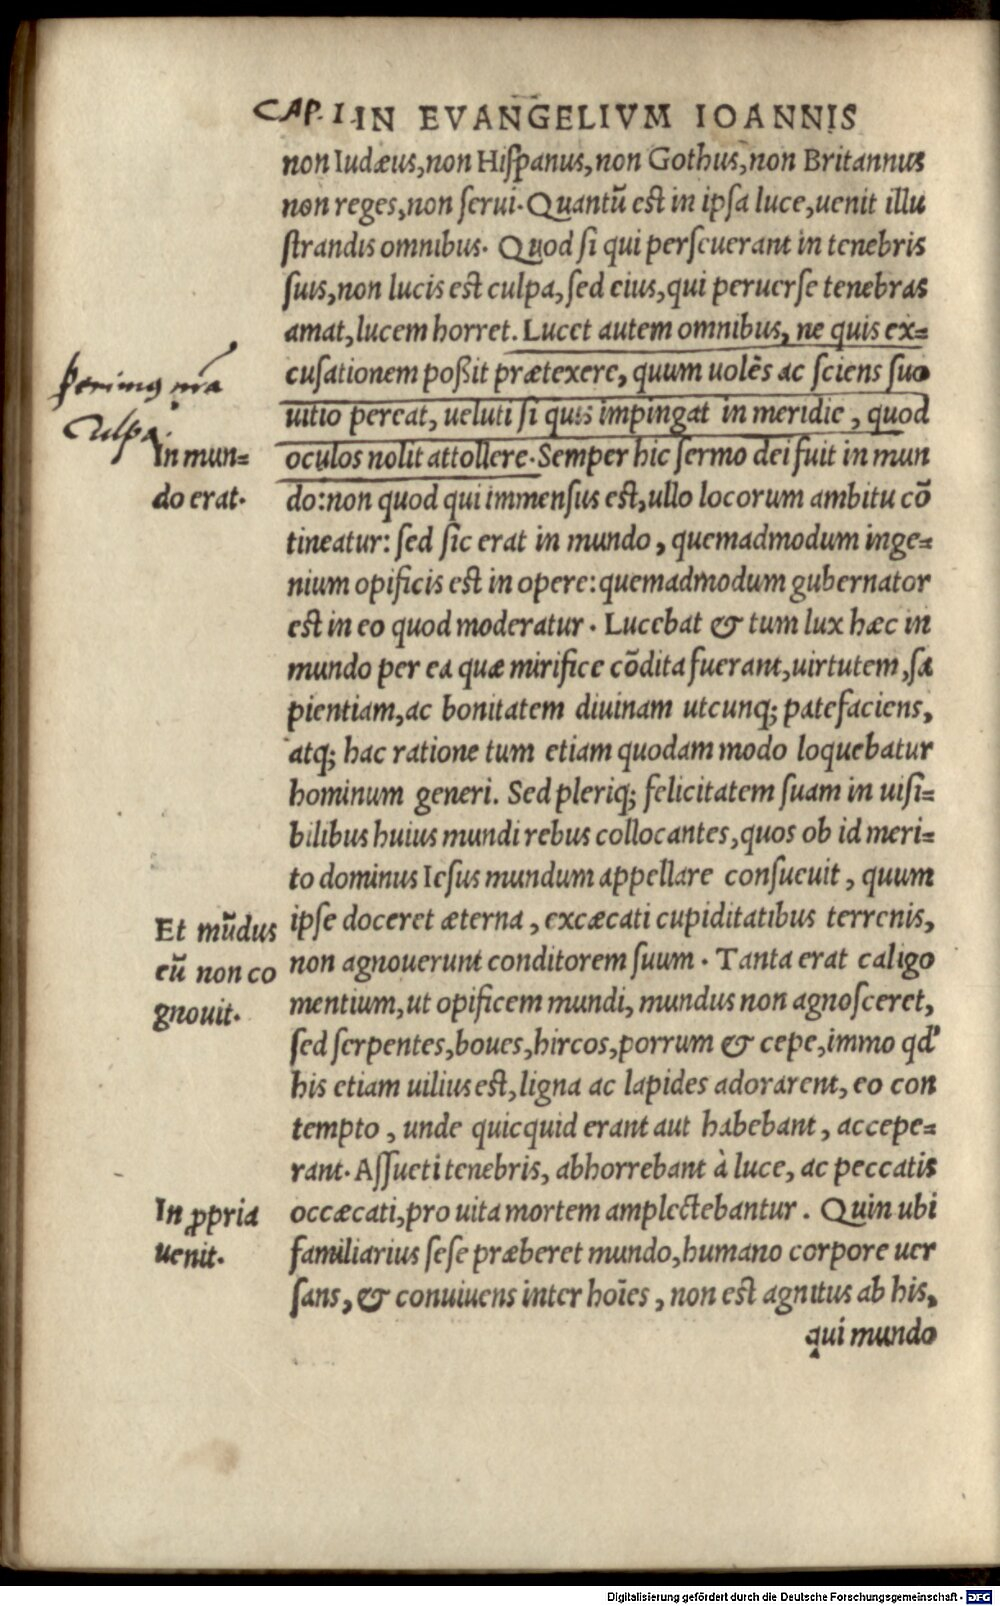 CAP. I. IN EVANGELIVM IOANNIS
non Iudæus, non Hiſpanus, non Gothus, non Britannus
non reges, non ſerui. Quantũ est in ipſa luce, uenit illu
ſtrandis omnibus. Quod ſi qui perſeuerant in tenebris
ſuis, non lucis est culpa, ſed eius, qui peruerſe tenebras
amat, lucem horret. Lucet autem omnibus, ne quis ex=
cuſationem poßit prætexere, quum uolẽs ac ſciens ſuo
uitio pereat, ueluti ſi quis impingat in meridie, quod
oculos nolit attollere. Semper hic ſermo dei fuit in mun
do: non quod qui immenſus est, ullo locorum ambitu cõ
tineatur: ſed ſic erat in mundo, quemadmodum inge=
nium opificis est in opere: quemadmodum gubernator
est in eo quod moderatur. Lucebat & tum lux hæc in
mundo per ea quæ mirifice cõdita fuerant, uirtutem, ſa
pientiam, ac bonitatem diuinam utcunq; patefaciens,
atq; hac ratione tum etiam quodam modo loquebatur
hominum generi. Sed pleriq; felicitatem ſuam in uiſi=
bilibus huius mundi rebus collocantes, quos ob id meri=
to dominus Ieſus mundum appellare conſueuit, quum
ipſe doceret æterna, excæcati cupiditatibus terrenis,
non agnouerunt conditorem ſuum. Tanta erat caligo
mentium, ut opificem mundi, mundus non agnoſceret,
ſed ſerpentes, boues, hircos, porrum & cepe, immo qd'
his etiam uilius est, ligna ac lapides adorarent, eo con
tempto, unde quicquid erant aut habebant, accepe=
rant. Aſſueti tenebris, abhorrebant à luce, ac peccatis
occæcati, pro uita mortem amplectebantur. Quin ubi
familiarius ſeſe præberet mundo, humano corpore uer
ſans, & conuiuens inter hoĩes, non est agnitus ab his,
qui mundo
Perimus nr̃a
Culpa.
In mun=
do erat.
Et mũdus
eũ non co
gnouit.
In ꝓpria
uenit.
Digitalisierung gefördert durch die Deutsche Forschungsgemeinschaft - DFG